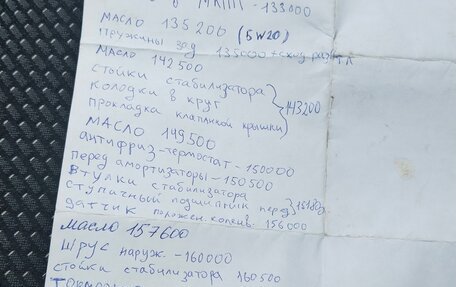 в МКПП - 133000
масло 135200 (5W20)
пружины зад 135000 + сход разв
масло 142500
стойки стабилизатора
колодки в круг } 143200
прокладка клапанной крышки
масло 149500
антифриз-термостат - 150000
перед амортизаторы - 150500
втулки стабилизатора
ступичный подшипник перед
датчик положен. коленв. 156000
масло 157600
шрус наруж. - 160000
стойка стабилизатора 160500